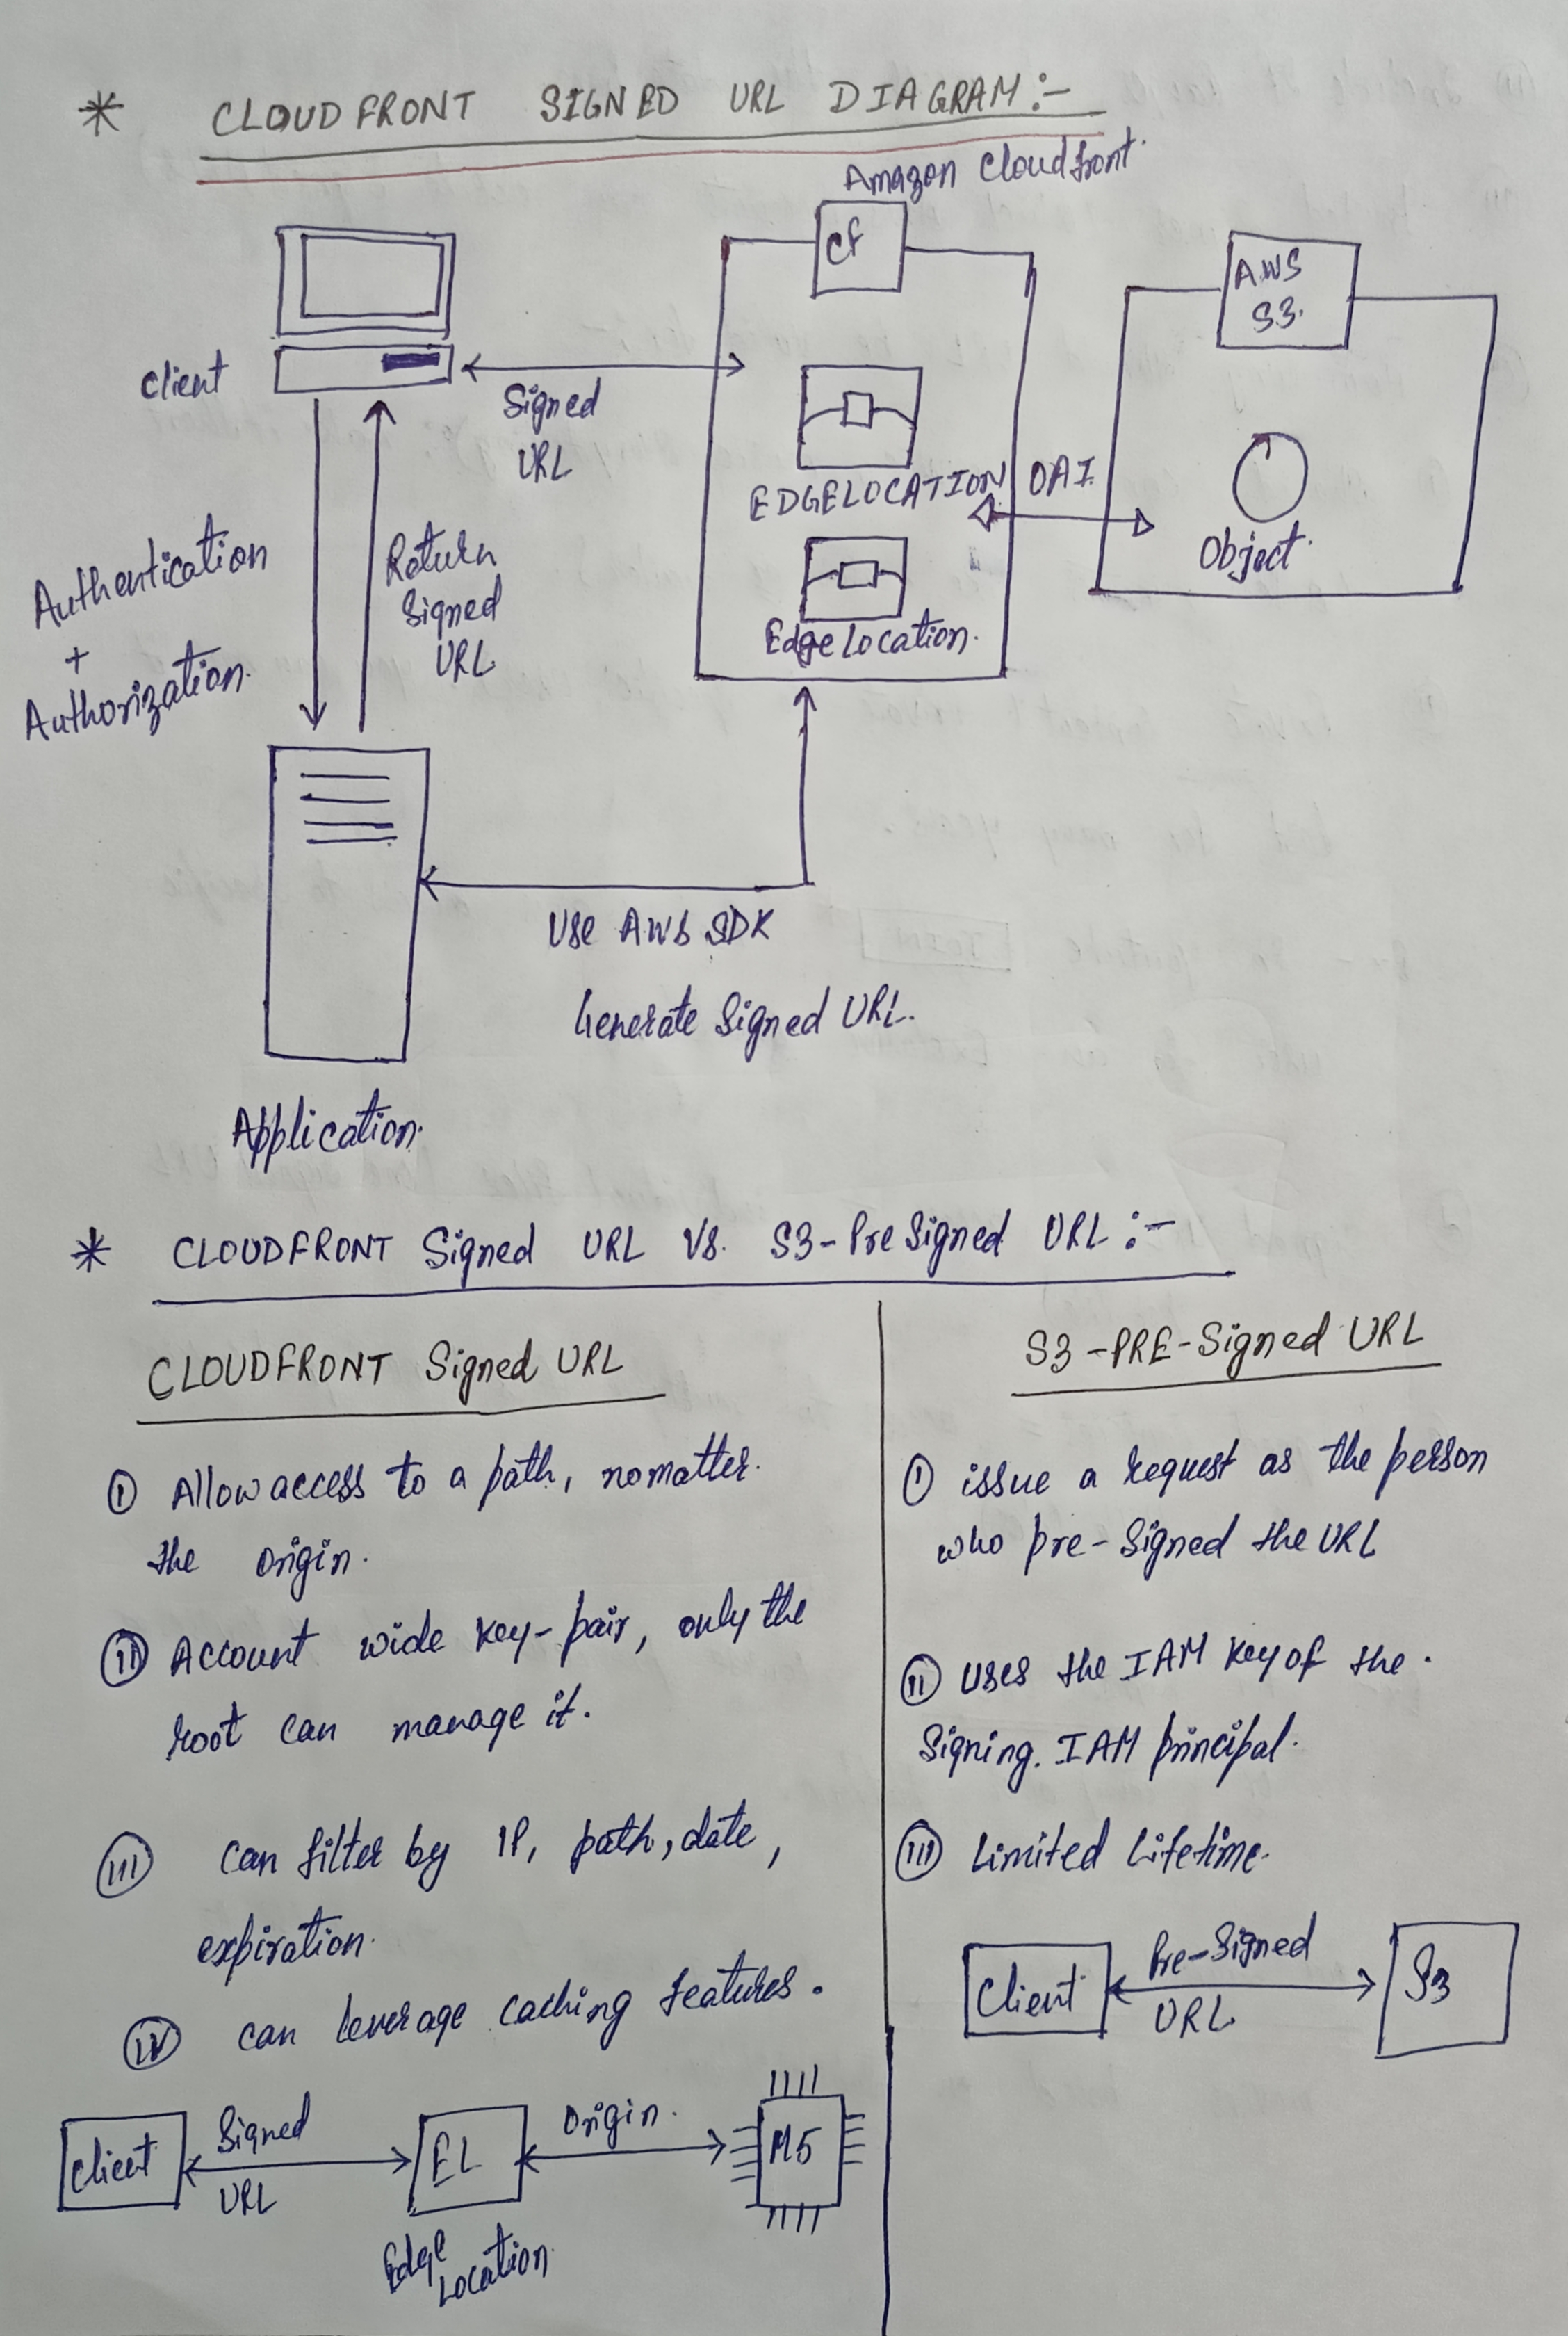 * CLOUDFRONT SIGNED URL DIAGRAM:-
Amazon Cloudfront.
CF
AWS
S3.
Client
Signed
URL
EDGELOCATION
OAI.
Object.
Edge Location.
Authentication
+
Authorization.
Return
Signed
URL
Use AWS SDK
Generate Signed URL.
Application.
* CLOUDFRONT Signed URL VS. S3-Pre Signed URL:-
CLOUDFRONT Signed URL
(i) Allow access to a path, no matter.
the origin.
(ii) Account wide key-pair, only the
root can manage it.
(iii) can filter by IP, path, date,
expiration.
(iv) can leverage caching features.
Client
Signed
URL
EL
Edge
Location.
Origin.
M5
S3-PRE-Signed URL
(i) issue a request as the person
who pre-Signed the URL
(ii) uses the IAM key of the.
Signing. IAM principal.
(iii) Limited Lifetime.
Client
Pre-Signed
URL.
S3